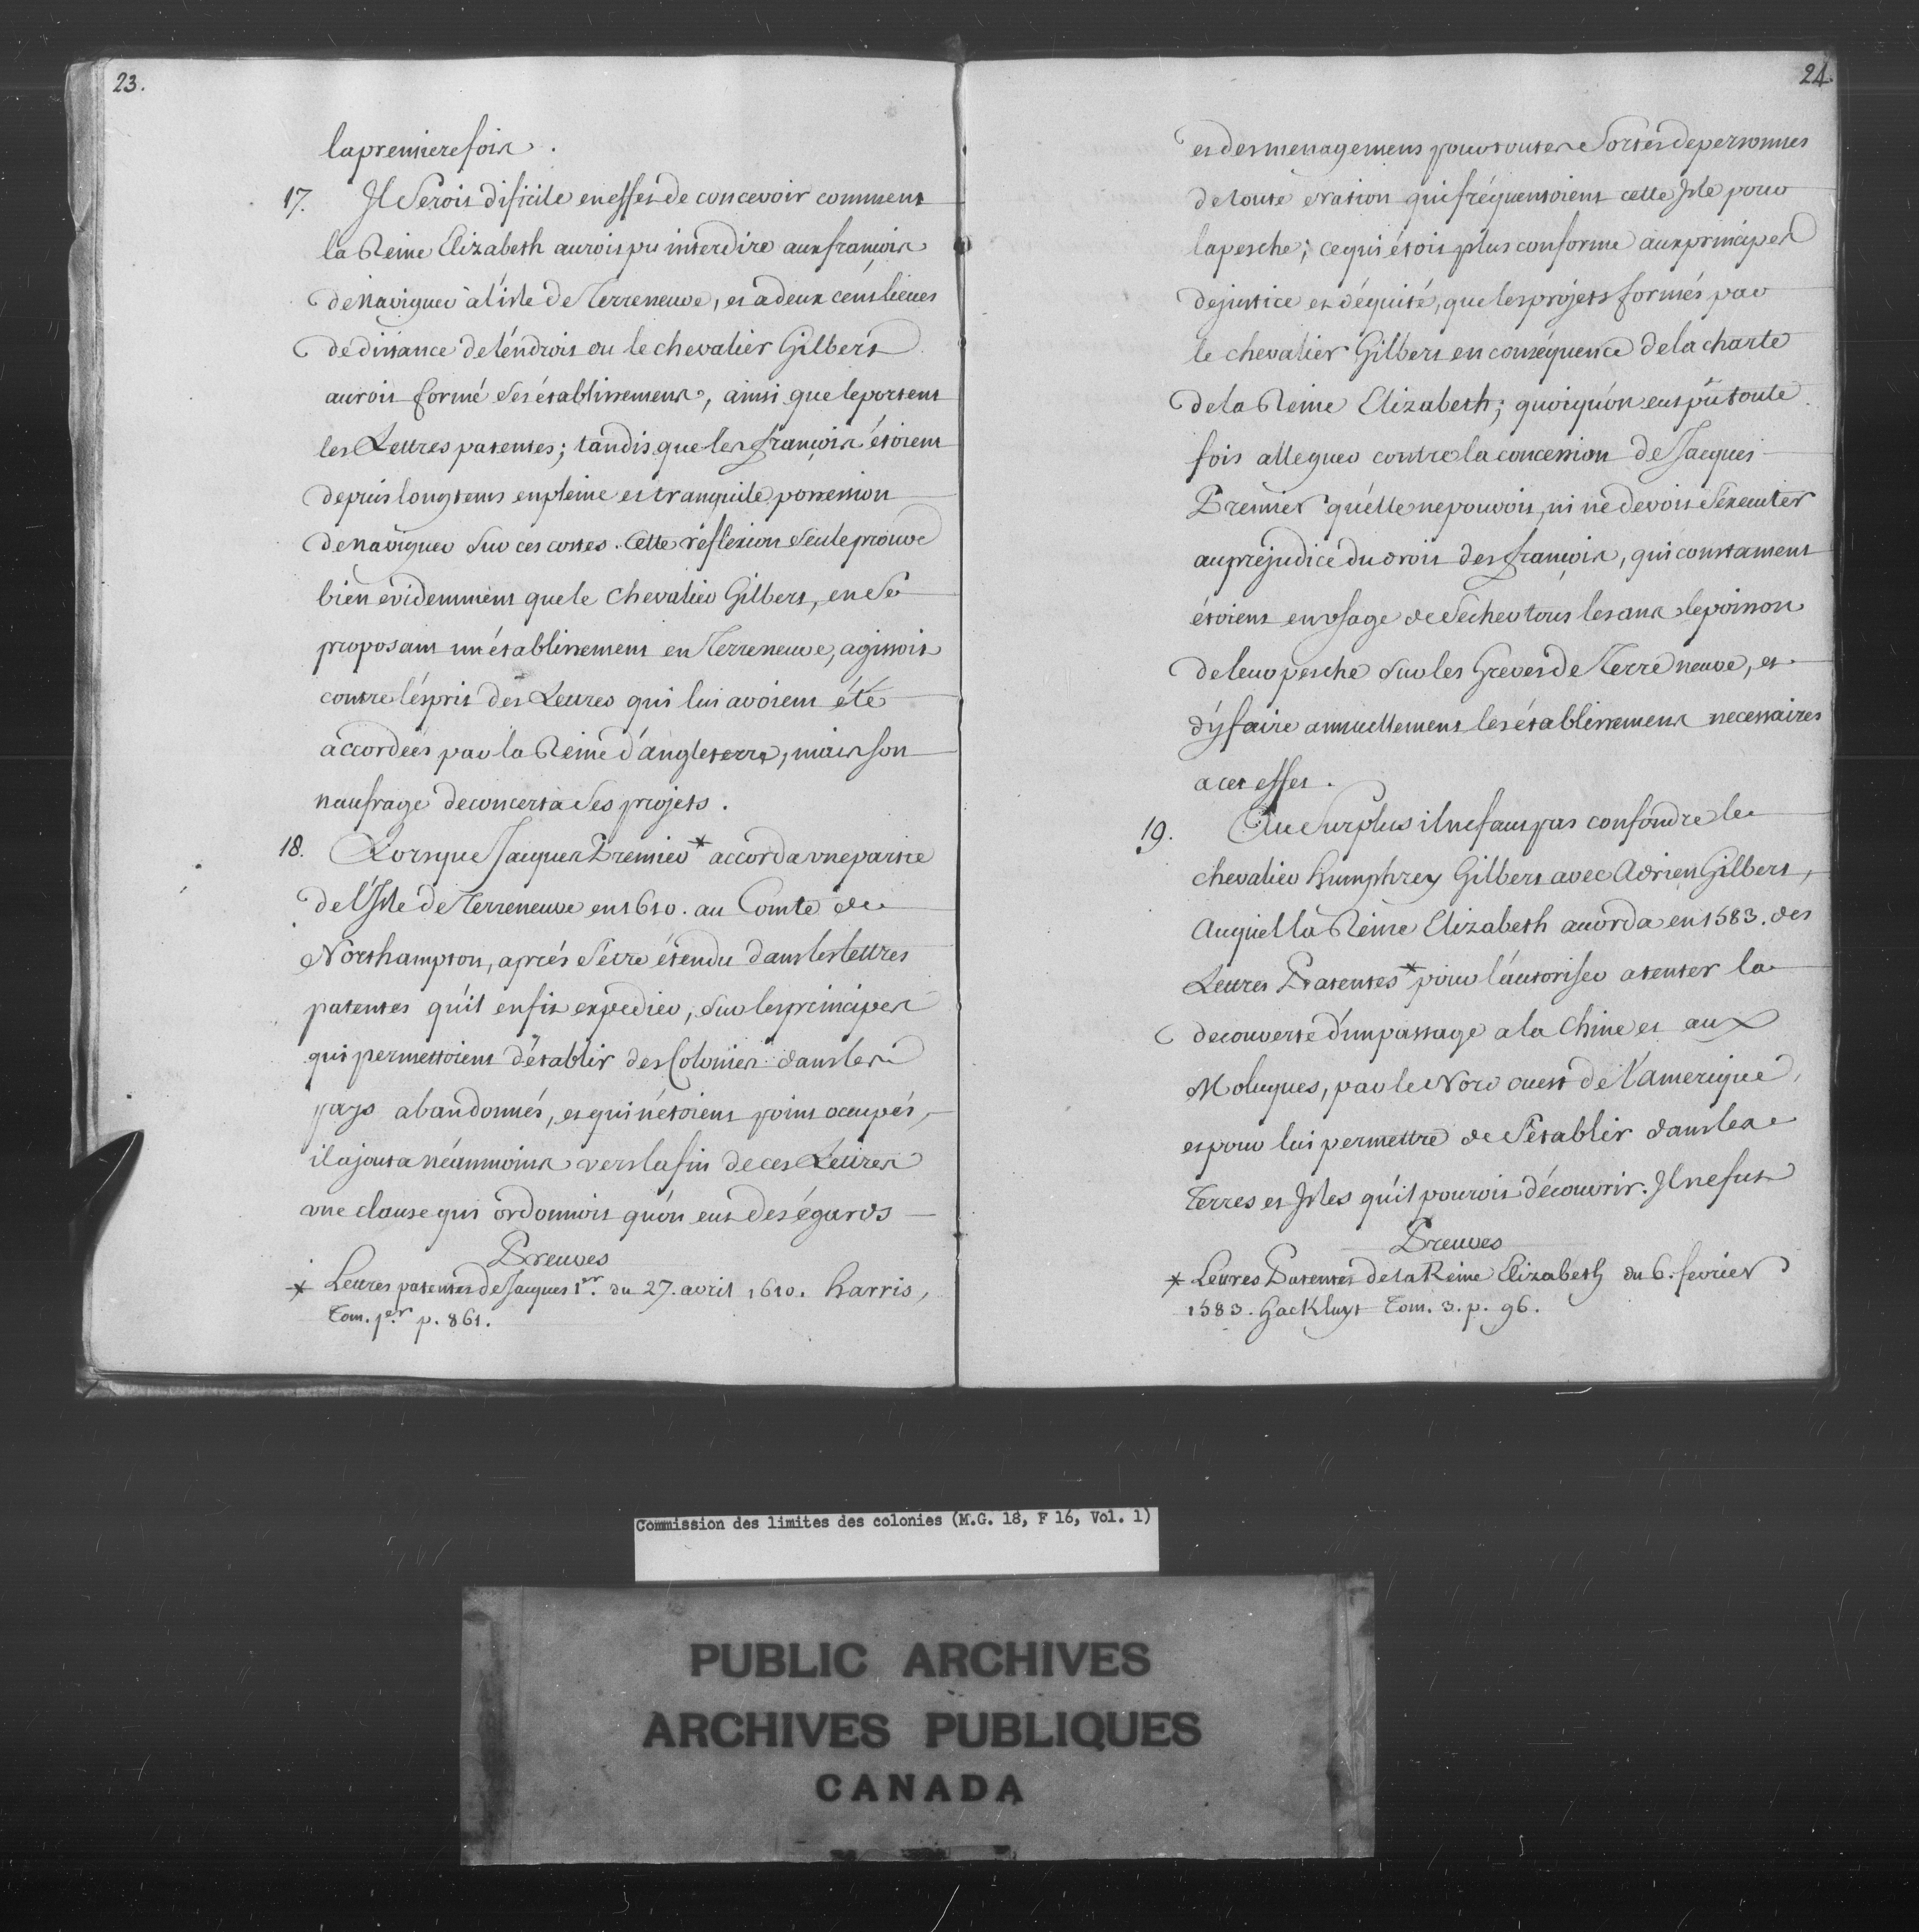 23.
la premiere fois.
17. Il seroit dificile en effet de concevoir comment
la Reine Elizabeth auroit pu interdire aux françois
de naviguer à l'isle de Terreneuve, et a deux cens lieues
de distance de l'endroit ou le chevalier Gilbert
auroit formé ses établissemens, ainsi que le portent
les Lettres patentes; tandis que les françois étoient
depuis longtems en pleine et tranquile possession
de naviguer sur ces costes. Cette réflexion seule prouve
bien evidemment que le chevalier Gilbert, en se
proposant un établissement en Terreneuve, agissoit
contre l'esprit des Lettres qui lui avoient été
accordées par la Reine d'angleterre, mais son
naufrage deconcerta ses projets.
18. Lorsque Jacques Premier * accorda une partie
de l'Isle de Terreneuve en 1610. au Comte de
Northampton, aprés s'etre étendu dans les lettres
patentes qu'il en fit expedier, sur les principes
qui permettoient d'établir des Colonies dans les
pays abandonnés, et qui n'étoient point occupés,
il ajouta néanmoins vers la fin de ces Lettres
une clause qui ordonnoit qu'on eut des égards
Preuves
* Lettres patentes de Jacques 1er. du 27. avril 1610. harris,
Tom. 1er. p. 861.
24.
et des menagemens pour toutes sortes de personnes
de toute nation qui fréquentoient cette Isle pour
la pesche; ce qui étoit plus conforme aux principes
de justice et d'équité, que les projets formés par
le chevalier Gilbert en conséquence de la charte
de la Reine Elizabeth; quoiqu'on eut pû toute
fois alleguer contre la concession de Jacques
Premier qu'elle ne pouvoit, ni ne devoit s'executer
au préjudice du droit des françois, qui constament
étoient en usage de secher tous les ans le poisson
de leur pesche sur les Greves de Terre neuve, et
d'y faire annuellement les établissemens necessaires
a cet effet.
19. Au surplus il ne faut pas confondre le
chevalier humphrey Gilbert avec Adrien Gilbert,
Auquel la Reine Elizabeth accorda en 1583. des
Lettres Patentes * pour l'autoriser a tenter la
decouverte d'un passage a la Chine et aux
Moluques, par le Nord ouest de l'amerique,
et pour lui permettre de s'établir dans les
Terres et Isles qu'il pouroit découvrir. Il ne fut
Preuves
* Lettres Patentes de la Reine Elizabeth du 6. fevrier
1583. Hackluyt Tom. 3. p. 96.
Commission des limites des colonies (M.G. 18, F 16, Vol. 1)
PUBLIC ARCHIVES
ARCHIVES PUBLIQUES
CANADA